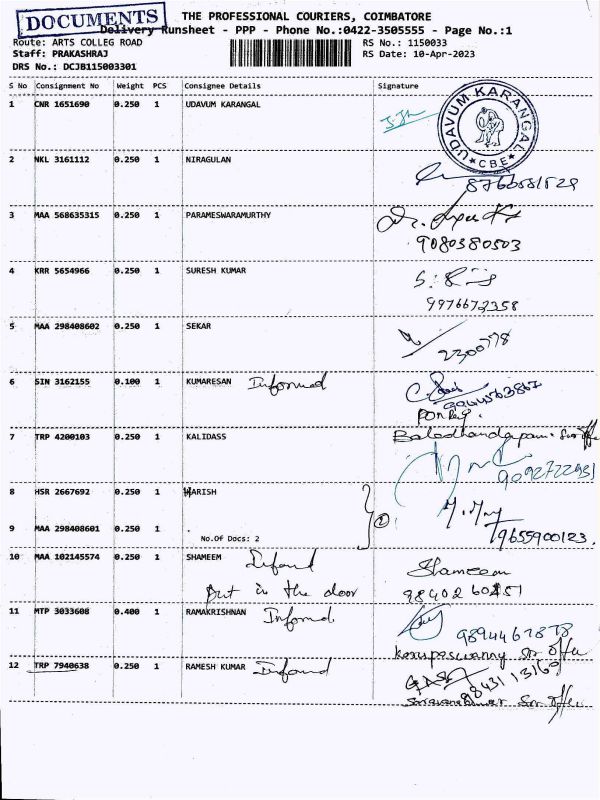 DOCUMENTS
THE PROFESSIONAL COURIERS, COIMBATORE
Delivery Runsheet - PPP - Phone No.:0422-3505555 - Page No.:1
Route: ARTS COLLEG ROAD RS No.: 1150033
Staff: PRAKASHRAJ RS Date: 10-Apr-2023
DRS No.: DCJB115003301
S No Consignment No Weight PCS Consignee Details Signature
1 CNR 1651690 0.250 1 UDAVUM KARANGAL
UDAVUM KARANGAL
CBE
2 NKL 3161112 0.250 1 NIRAGULAN
3 MAA 568635315 0.250 1 PARAMESWARAMURTHY
9080380503
4 KRR 5654966 0.250 1 SURESH KUMAR
9976672358
5 MAA 298408602 0.250 1 SEKAR
2300778
6 SIN 3162155 0.100 1 KUMARESAN Informed
7 TRP 4200103 0.250 1 KALIDASS
9092722931
8 HSR 2667692 0.250 1 HARISH
2
9 MAA 298408601 0.250 1 .
No.Of Docs: 2
9655900123.
10 MAA 102145574 0.250 1 SHAMEEM Shameem
Put in the door
11 MTP 3033608 0.400 1 RAMAKRISHNAN Informed
12 TRP 7940638 0.250 1 RAMESH KUMAR